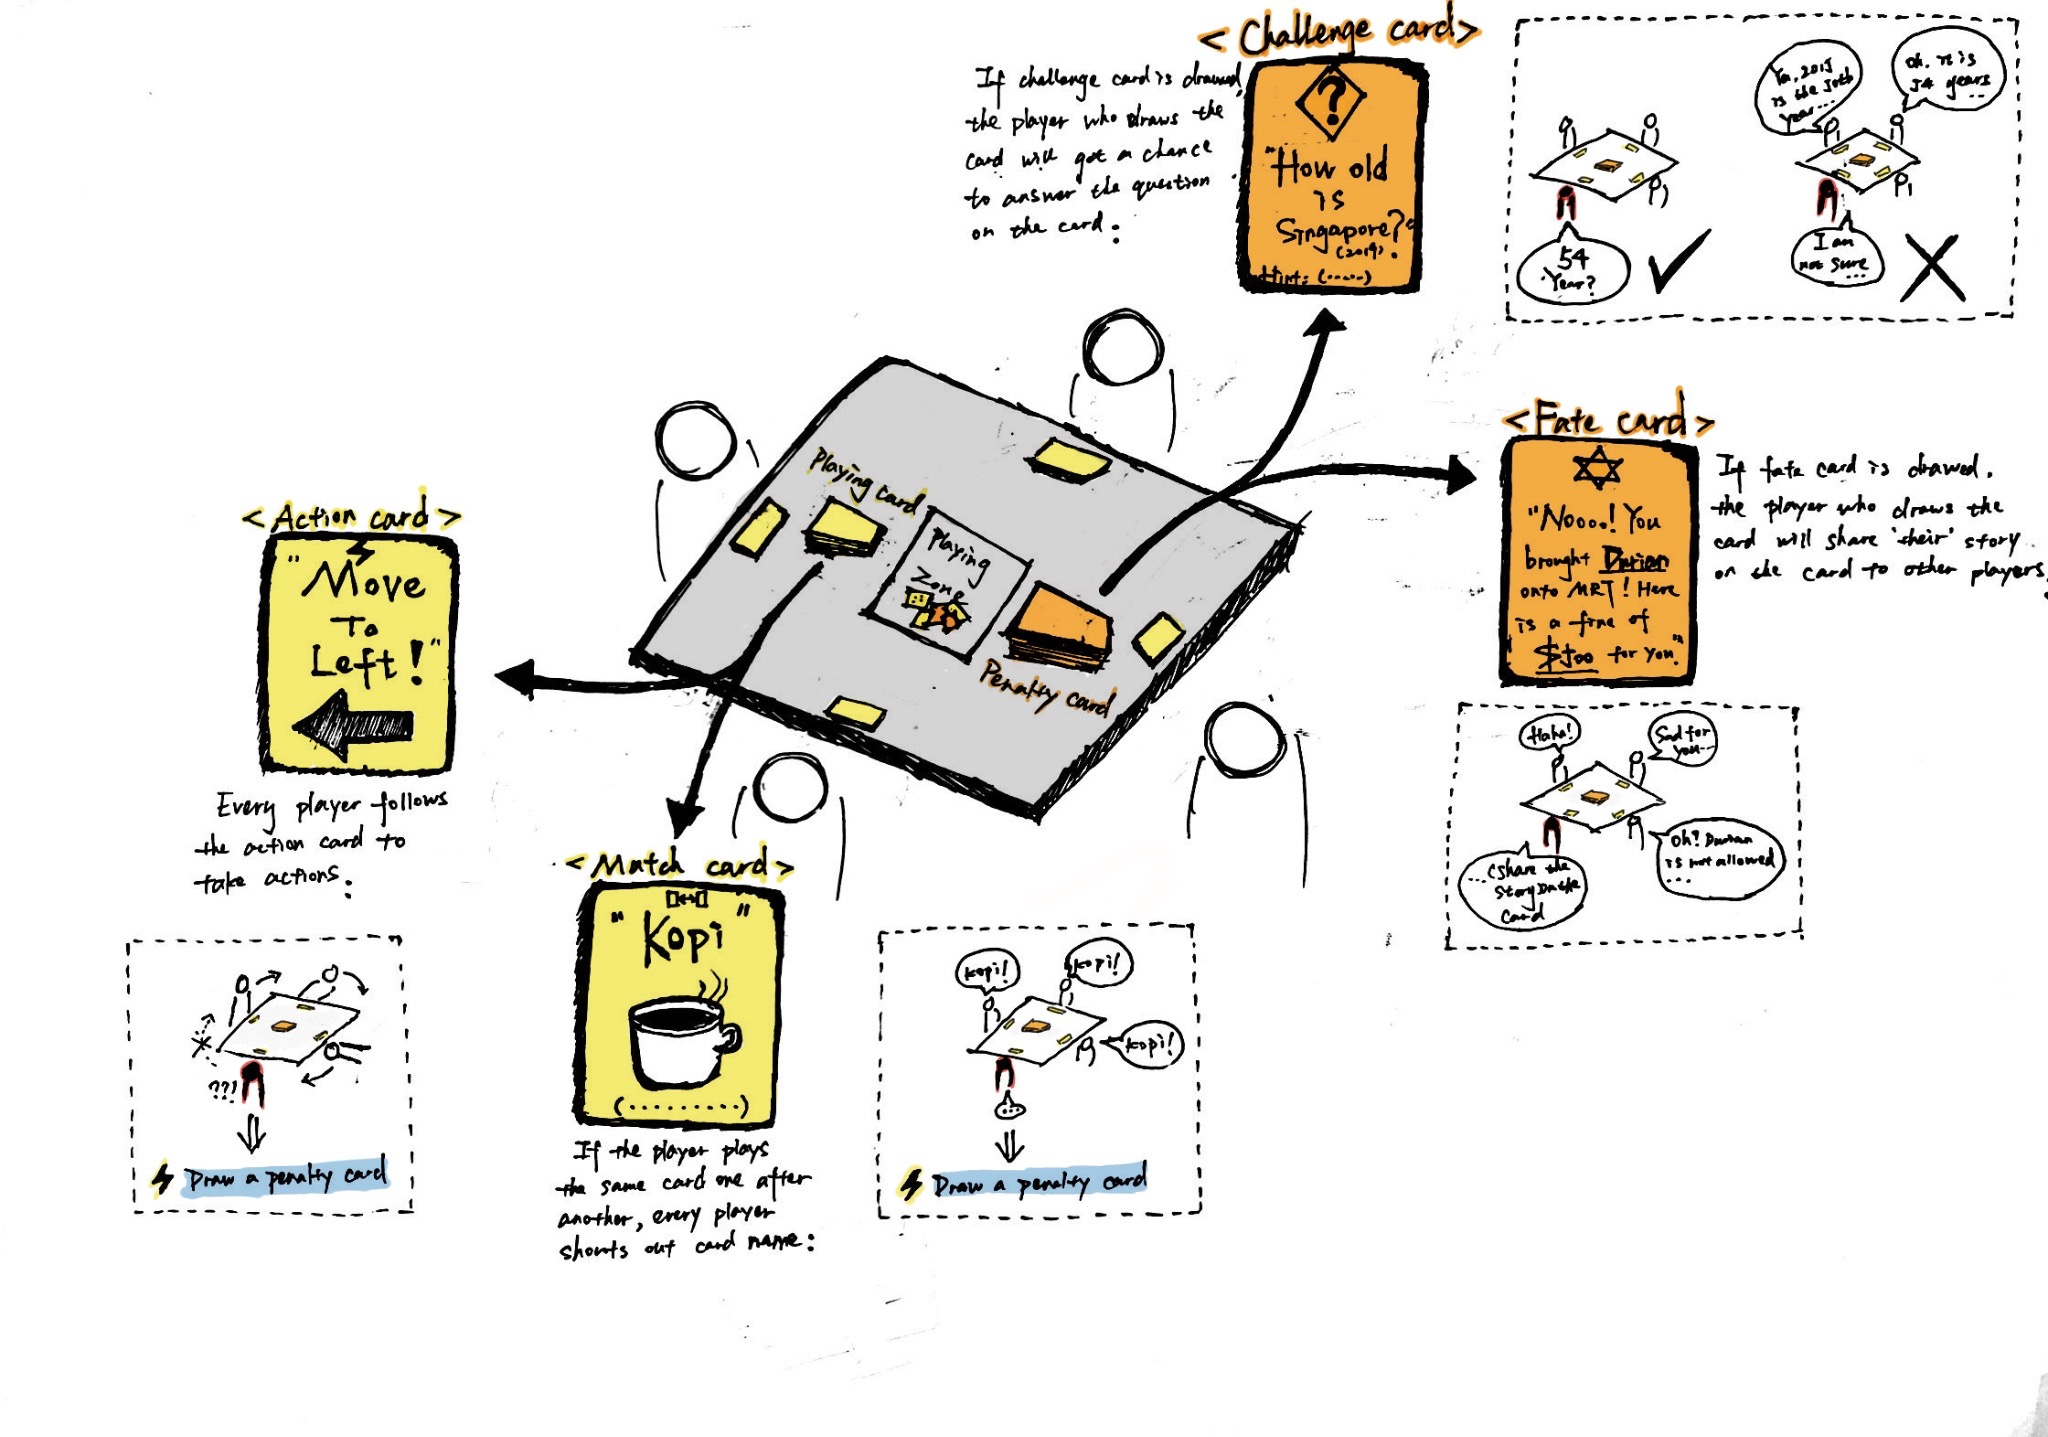 <Challenge card>
If challenge card is drawed
the player who draws the
card will got a chance
to answer the question
on the card:
?
"How old
is
Singapore?"
(2019).
Hint: (......)
Ya, 2015
is the 50th
year....
Oh. it is
54 years
...
54
Year?
I am
not sure
...
<Fate card>
"Nooo.! You
brought Durian
onto MRT! Here
is a fine of
$500 for you."
If fate card is drawed.
the player who draws the
card will share 'their' story
on the card to other players.
Haha!
Sad for
you...
...(share the
story on the
card
Oh! Durian
is not allowed
...
Playing card
Playing
Zone
Penalty card
<Action card>
"Move
To
Left!"
Every player follows
the action card to
take actions:
??!
Draw a penalty card
<Match card>
"Kopi"
(.........)
If the player plays
the same card one after
another, every player
shouts out card name:
Kopi!
Kopi!
Kopi!
...
Draw a penalty card